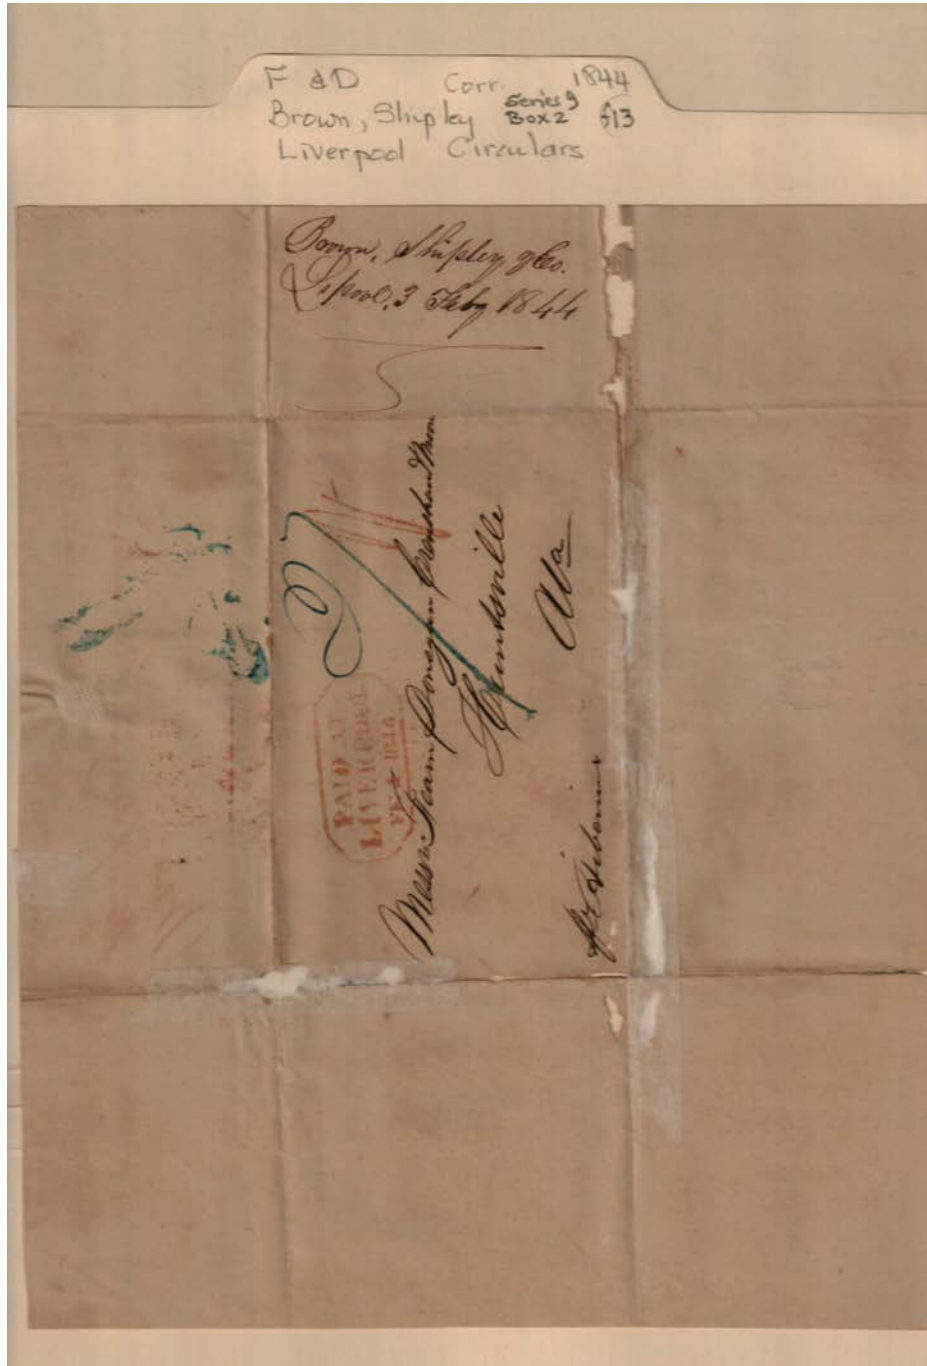 F & D Corr. 1844
Brown, Shipley Series 9 Box 2 f13
Liverpool Circulars
Brown, Shipley & Co.
Lpool, 3 Feby 1844
PAID AT
LIVERPOOL
FE 1844
Messrs Fearn Donegan Crenshaw
Huntsville
Ala